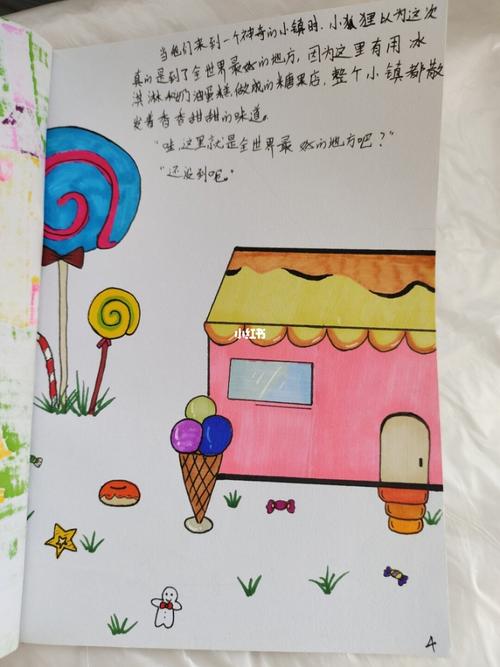 当他们来到一个神奇的小镇时,小狐狸以为这次
真的是到了全世界最好的地方,因为这里有用冰
淇淋和奶油蛋糕做成的糖果店,整个小镇都散
发着香香甜甜的味道。
"哇,这里就是全世界最好的地方吧?"
"还没到呢。"
小红书
4